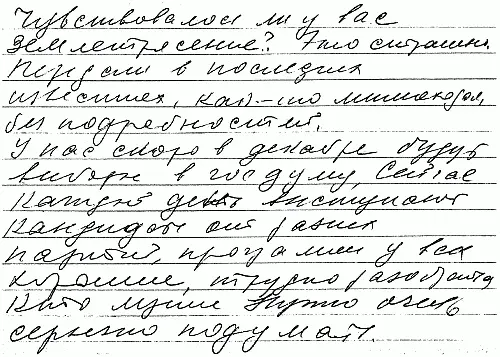 Чувствовалось ли у вас
землетрясение? Это страшно.
Передали в последних
известиях, как-то мимоходом,
без подробностей.
У нас скоро в декабре будут
выборы в госдуму, сейчас
каждый день выступают
кандидаты от разных
партий, программы у всех
хорошие, трудно разобраться
кто лучше нужно очень
серьезно подумать.